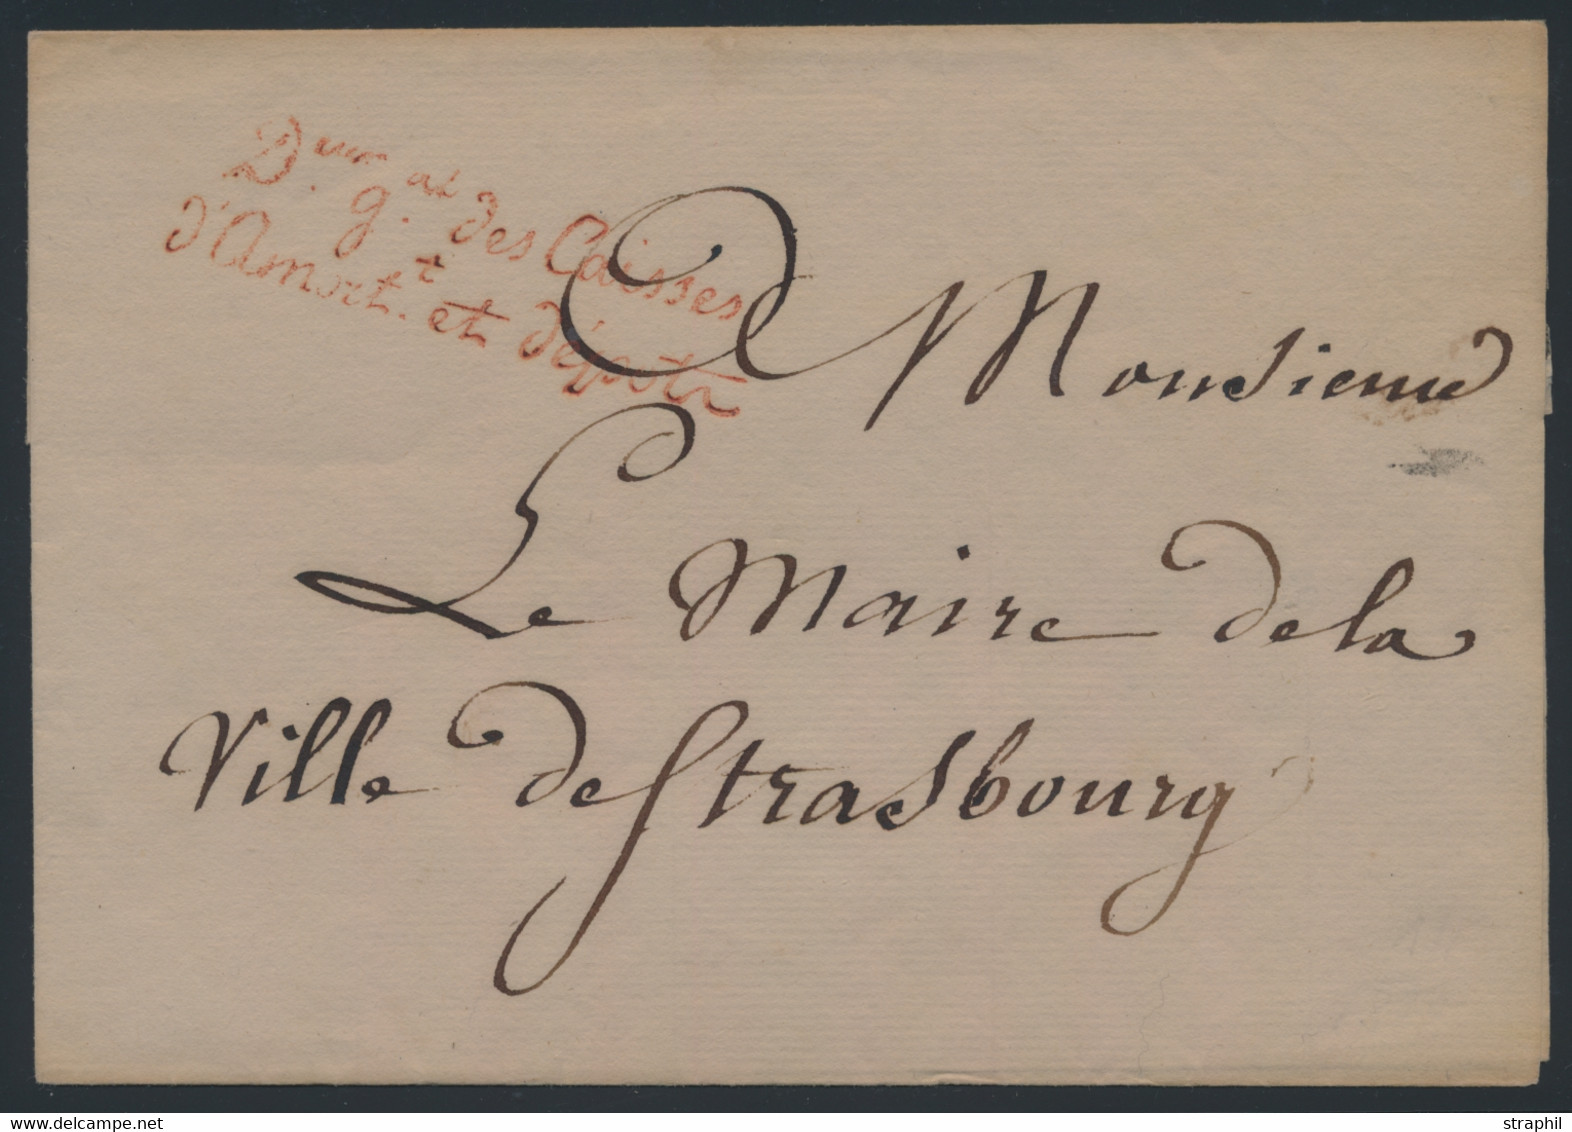 D.eur g.al des Caisses
d'Amort.t et dépôts
A Monsieur
Le Maire de la
Ville de Strasbourg
www.delcampe.net
straphil